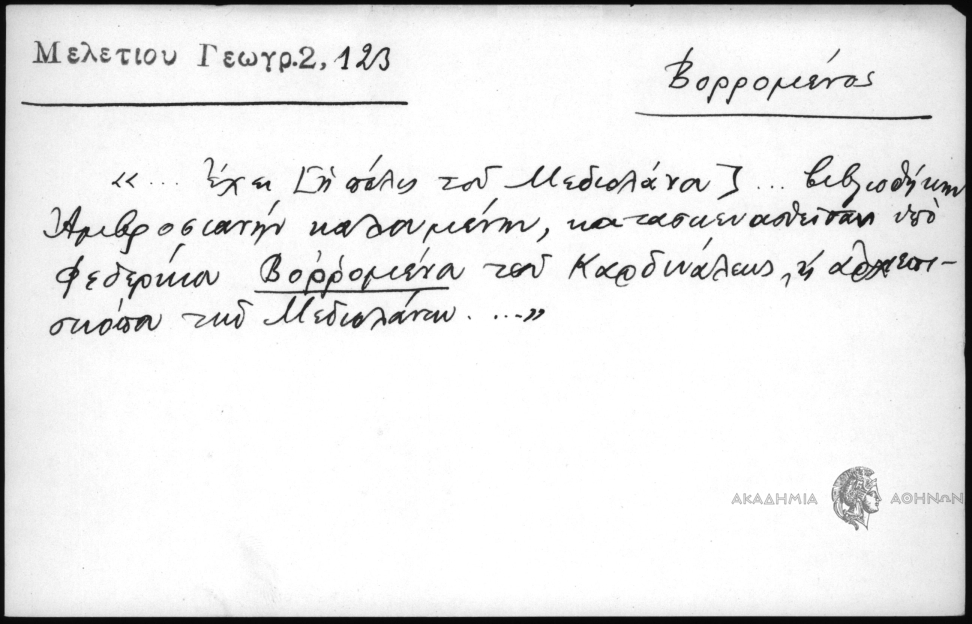 Μελετίου Γεωγρ.2, 123
Βορρομένος
«... ἔχει [ἡ πόλις τοῦ Μεδιολάνου] ... βιβλιοθήκην
Ἀμβροσιανὴν καλουμένην, κατασκευασθεῖσαν ὑπὸ
Φεδερίκου Βοῤῥομένου τοῦ Καρδινάλεως, ἢ ἀρχιεπι-
σκόπου τοῦ Μεδιολάνου. ...»
ΑΚΑΔΗΜΙΑ ΑΘΗΝΩΝ